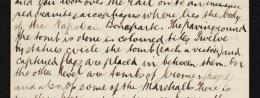 and you look over the rail on to an immense
red granite sarcophagus where lies the body
of the Napoleon Bonaparte. The paving round
the tomb is done in coloured tiles. Twelve
statues circle the tomb (each a victory) and
captured flags are placed in between them. On
the other level are tombs of Jerome
and of some of the Marshalls. Here is